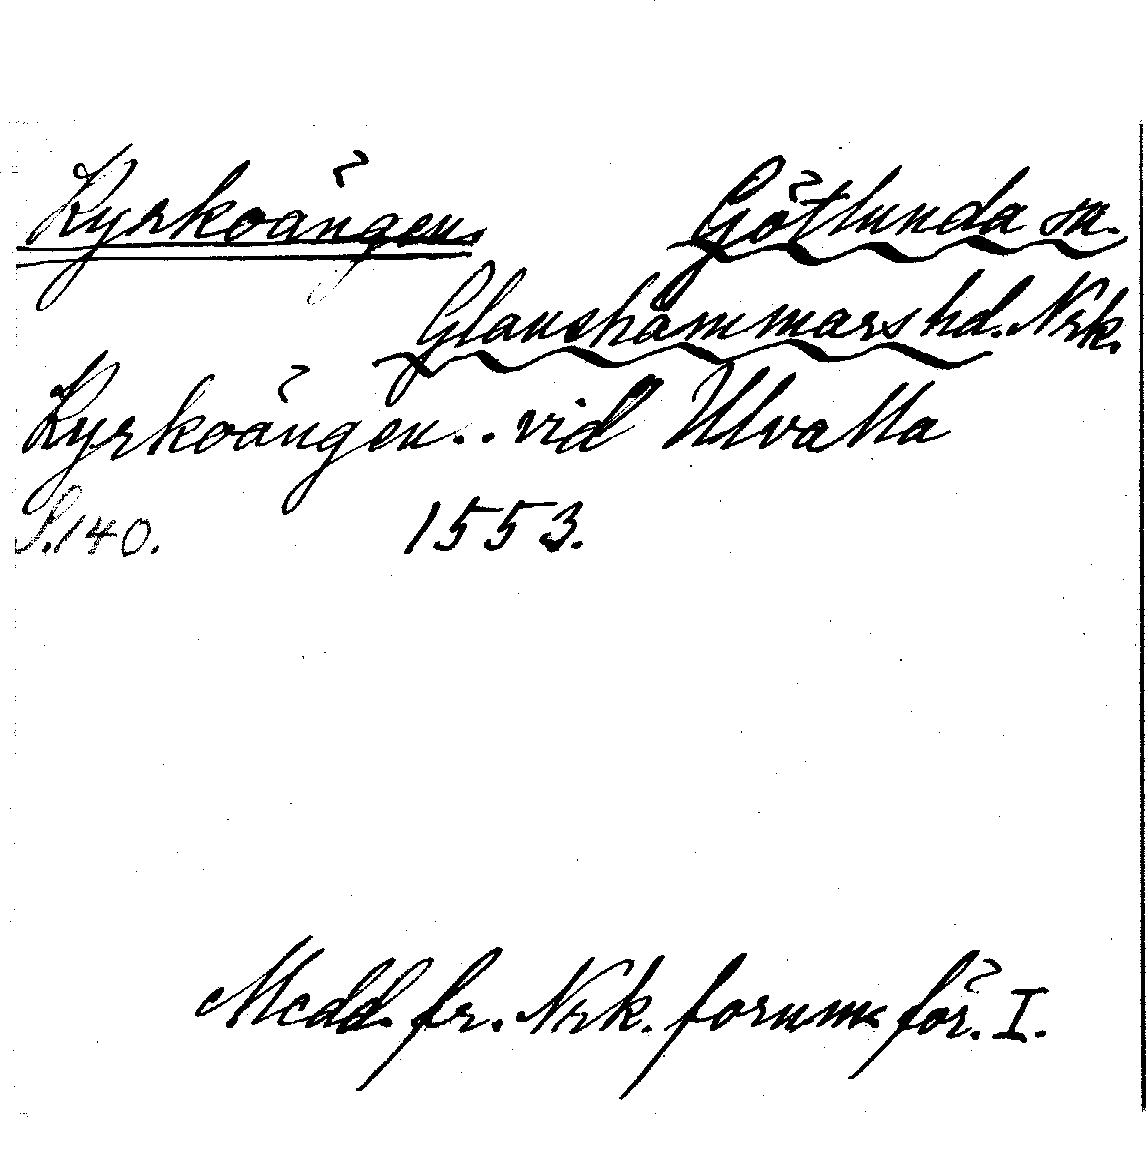 Kyrkoängen. Götlunda sn.
Glanshammars hd. Nrk.
Kyrkoängen.. vid Ulvalla
S. 140. 1553.
Medd. fr. Nrk. fornm. för. I.